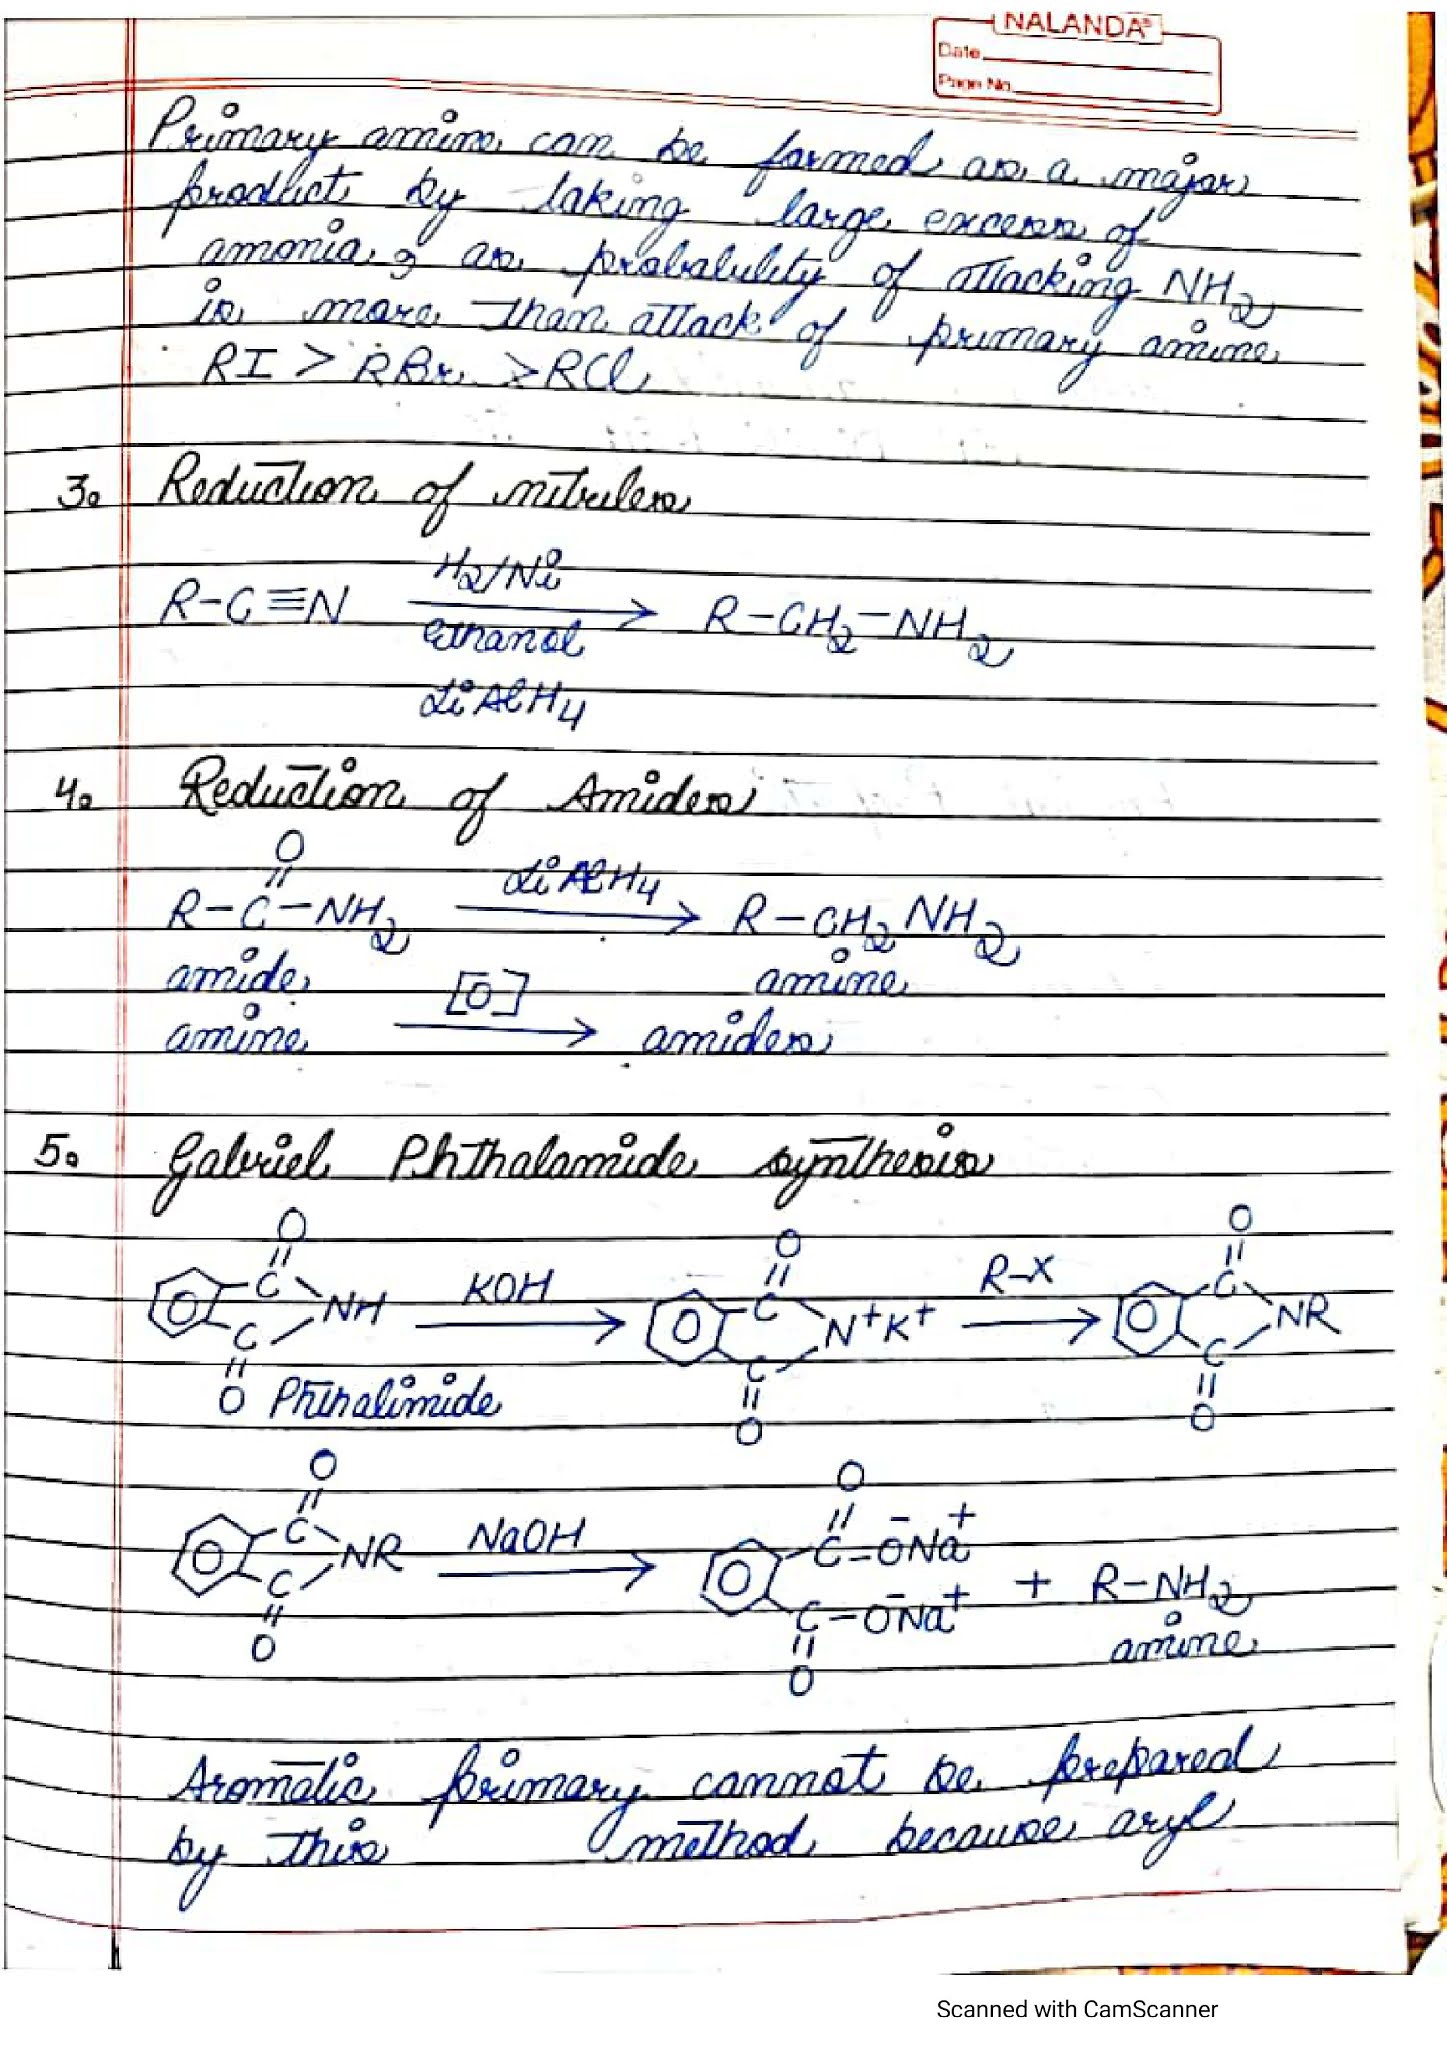 NALANDA
Date
Page No
Primary amine can be formed as a major
product by taking large excess of
amonia, as probabulity of attacking NH2
is more than attack of primary amine
RI > RBr > RCl
3. Reduction of nitriles
H2/Ni
R-C≡N → R-CH2-NH2
Ethanol
LiAlH4
4. Reduction of Amides
O
LiAlH4
R-C-NH2 → R-CH2NH2
amide amine
[O]
amine → amides
5. Gabriel Phthalamide synthesis
O O O
C KOH C R-X C
NH → N+K+ → NR
C C C
O Phthalimide O O
O O
C NaOH C-ŌNa+
NR → + R-NH2
C C-ŌNa+ amine
O O
Aromatic primary cannot be prepared
by this method because aryl
Scanned with CamScanner